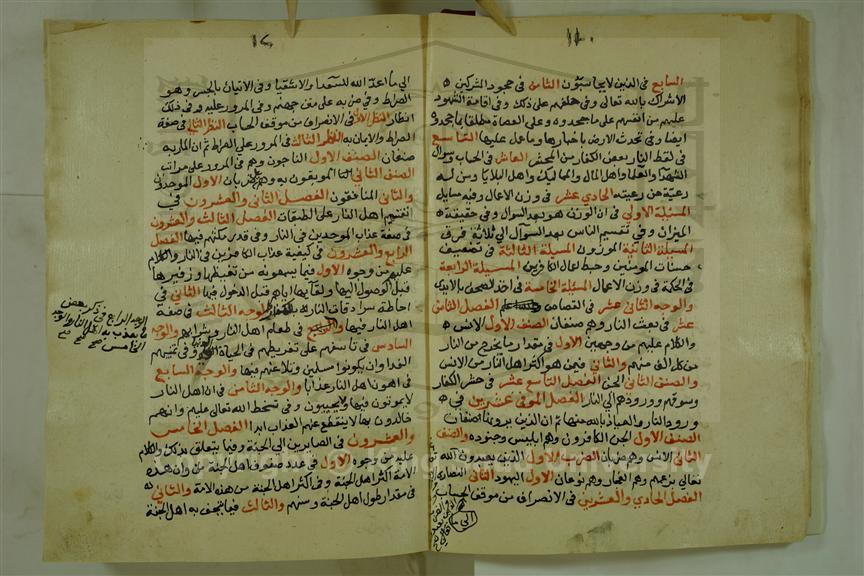 السابع في الذين لا يحاسبون الثامن في جحود المشركين
الاشراك بالله تعالى وفي حلفهم على ذلك وفي اقامة الشهود
عليهم من انفسهم على ما جحدوه وعلى العصاة مطلقا بما جحدوه
ايضا وفي تحدث الارض باخبارها وما عمل عليها التاسع
في لقط النار بعض الكفار من المحشر العاشر في الحساب وسوال
الشهدا والعلما واهل المال والمماليك واهل البلايا ومن له
رعية عن رعيته الحادي عشر في وزن الاعمال وفيه مسايل
المسئلة الاولى في ان الوزن هو بعد السوال وفي حقيقة
الميزان وفي تقسيم الناس بعد السوال الى ثلاثة فرق
المسيلة الثانية الموزون المسيلة الثالثة في تضعيف
حسنات المومنين وحبط اعمال الكافرين المسيلة الرابعة
في الحكمة في وزن الاعمال المسئلة الخامسة في اخذ الصحف بالايدي
والوجه الثاني عشر في القصاص الفصل الثامن
عشر في بعث النار وهم صنفان الصنف الاول الانس
والكلام عليهم من وجهين الاول في مقدار ما يخرج من النار
من كل الف منهم والثاني فيمن هو اكثر اهل النار من الانس
والصنف الثاني الجن الفصل التاسع عشر في حشر الكفار
وسوقهم وورودهم الى النار الفصل الموفي عشرين في
ورود النار والعياذ بالله منها ثم ان الذين يردونها صنفان
الصنف الاول الجن الكافرون وهم ابليس وجنوده والصنف
الثاني الانس وهم ضربان الضرب الاول الذين يعبدون الله
تعالى بزعمهم وهم الفجار وهم نوعان الاول اليهود الثاني النصارى
الفصل الحادي والعشرين في الانصراف من موقف الحساب
الى ما اعد الله للسعداء والاشقياء وفي الاتيان بالجسر وهو
الصراط وفي من به على متن جهنم وفي المرور عليه وفي ذلك
انظار النظر الاول في الانصراف من موقف الحساب النظر الثاني في صفة
الصراط والاتيان به النظر الثالث في المرور على الصراط ثم ان المار به
صنفان الصنف الاول الناجون وهم في المرور على مراتب
الصنف الثاني الموبقون به وهم ضربان الاول الموحدون
والثاني المنافقون الفصل الثاني والعشرون في
انقسام اهل النار على الطبقات الفصل الثالث والعشرون
في صفة عذاب الموحدين في النار وفي قدر مكثهم فيها الفصل
الرابع والعشرون في كيفية عذاب الكافرين في النار والكلام
عليه من وجوه الاول فيما يسمعونه من تغيظها وزفيرها
قبل الوصول اليها ولقايها اياهم قبل الدخول فيها الثاني في
احاطة سرادقات النار الوجه الثالث في صفة
اهل النار فيها والرابع في طعام اهل النار وشرابهم والوجه
السادس في تاسفهم على تفريطهم في الحياة الدنيا وفي تمنيهم
الفدا وان يكونوا مسلمين وتلاعنهم فيها والوجه السابع
في اهون اهل النار عذابا والوجه الثامن في ان اهل النار
لا يموتون فيها ولا يحييون وفي سخط الله تعالى عليهم وانهم
خالدون بها لا ينقطع عنهم العذاب ابدا الفصل الخامس
والعشرون في الصايرين الى الجنة وفيما يتعلق بذلك والكلام
عليه من وجوه الاول في عدد صفوف اهل الجنة من وان هذه
الامة اكثر اهل الجنة وفي اكثر اهل الجنة من هذه الامة والثاني
في مقدار طول اهل الجنة وسنهم والثالث فيما يتحف به اهل الجنة
الوجه الرابع في ذكر بعض
ما يعذب به اهل النار والوجه
الخامس